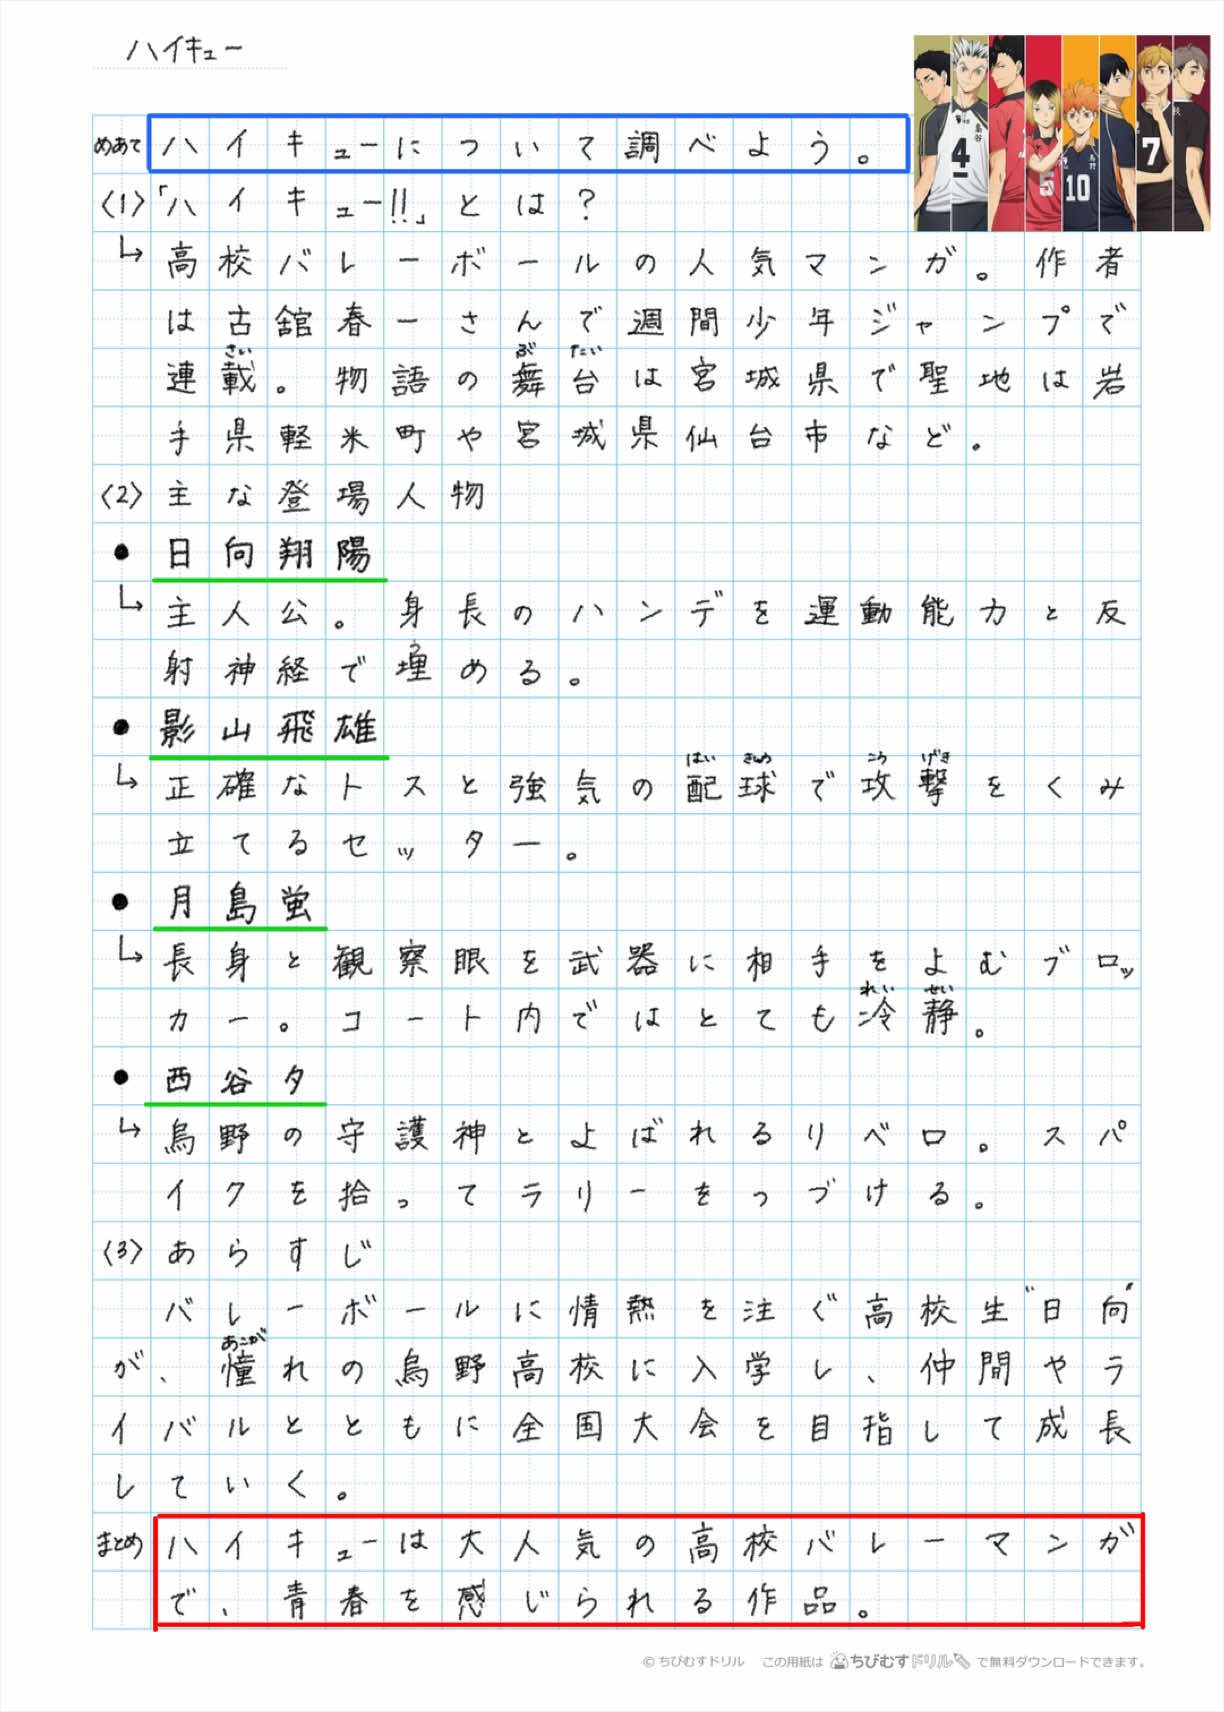 ハイキュー
めあて ハイキューについて調べよう。
(1)「ハイキュー!!」とは?
↳ 高校バレーボールの人気マンガ。作者
は古舘春一さんで週間少年ジャンプで
さい ぶ たい
連載。物語の舞台は宮城県で聖地は岩
手県軽米町や宮城県仙台市など。
(2) 主な登場人物
● 日向翔陽
↳ 主人公。身長のハンデを運動能力と反
う
射神経で埋める。
● 影山飛雄
はい きゅう こう げき
↳ 正確なトスと強気の配球で攻撃をくみ
立てるセッター。
● 月島蛍
↳ 長身と観察眼を武器に相手をよむブロッ
れい せい
カー。コート内ではとても冷静。
● 西谷夕
↳ 烏野の守護神とよばれるリベロ。スパ
イクを拾ってラリーをつづける。
(3) あらすじ
バレーボールに情熱を注ぐ高校生"日向"
あこが
が、憧れの烏野高校に入学し、仲間やラ
イバルとともに全国大会を目指して成長
していく。
まとめ ハイキューは大人気の高校バレーマンガ
で、青春を感じられる作品。
4
5
10
7
© ちびむすドリル この用紙は ちびむすドリル で無料ダウンロードできます。